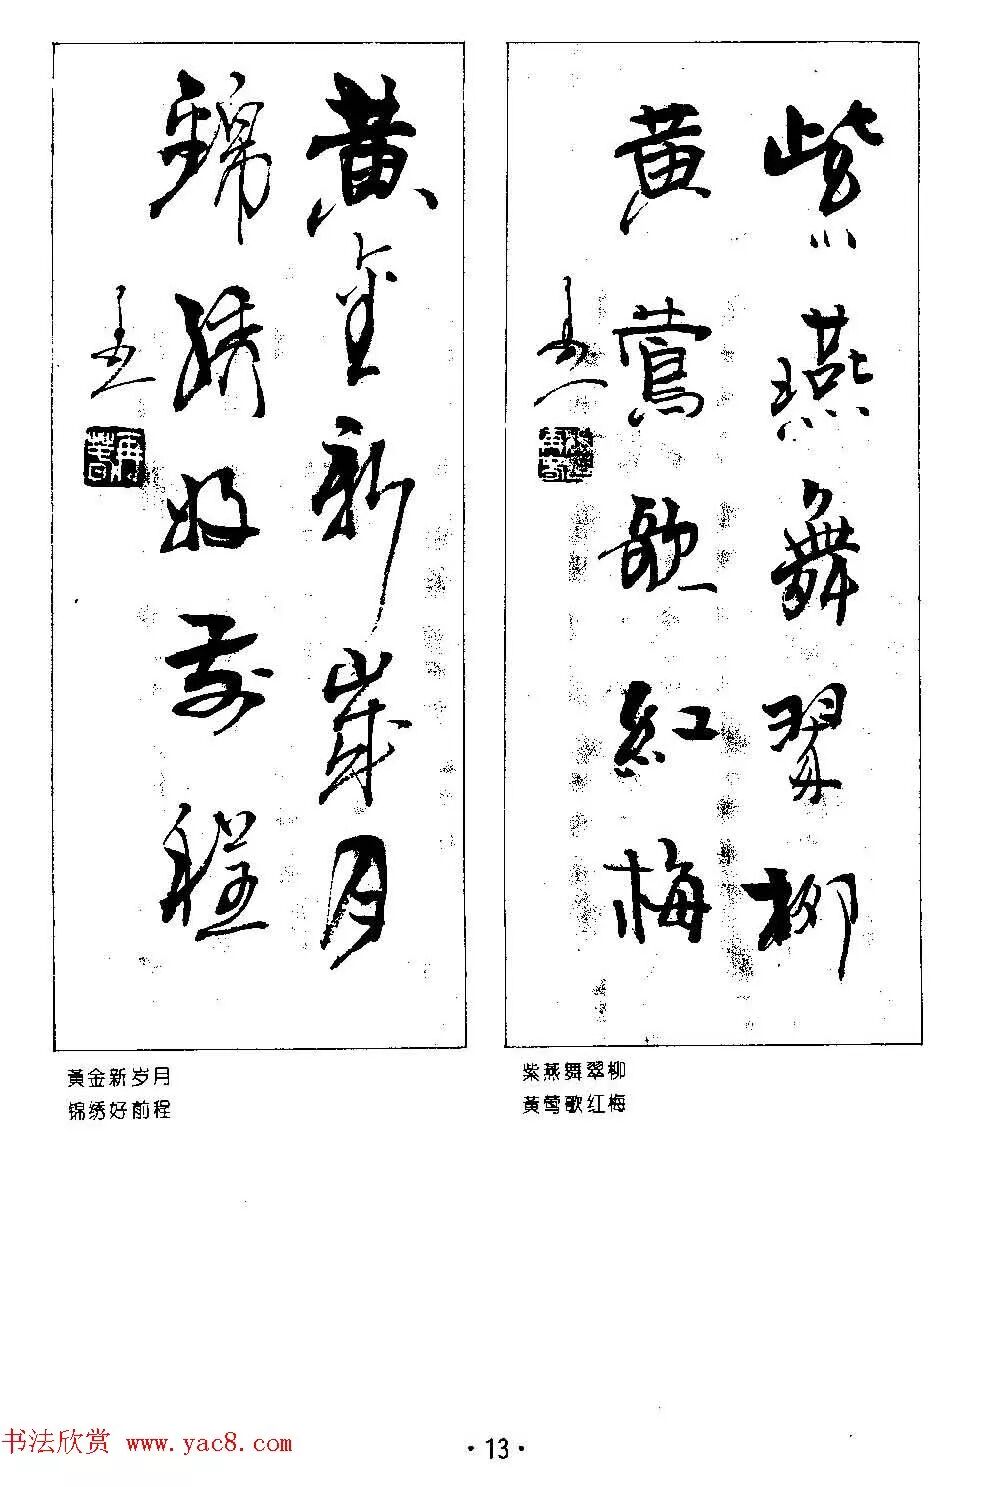 紫燕舞翠柳
黄莺歌紅梅
黄金新歲月
錦绣好前程
黄金新岁月
锦绣好前程
紫燕舞翠柳
黄莺歌红梅
书法欣赏 www.yac8.com
·13·